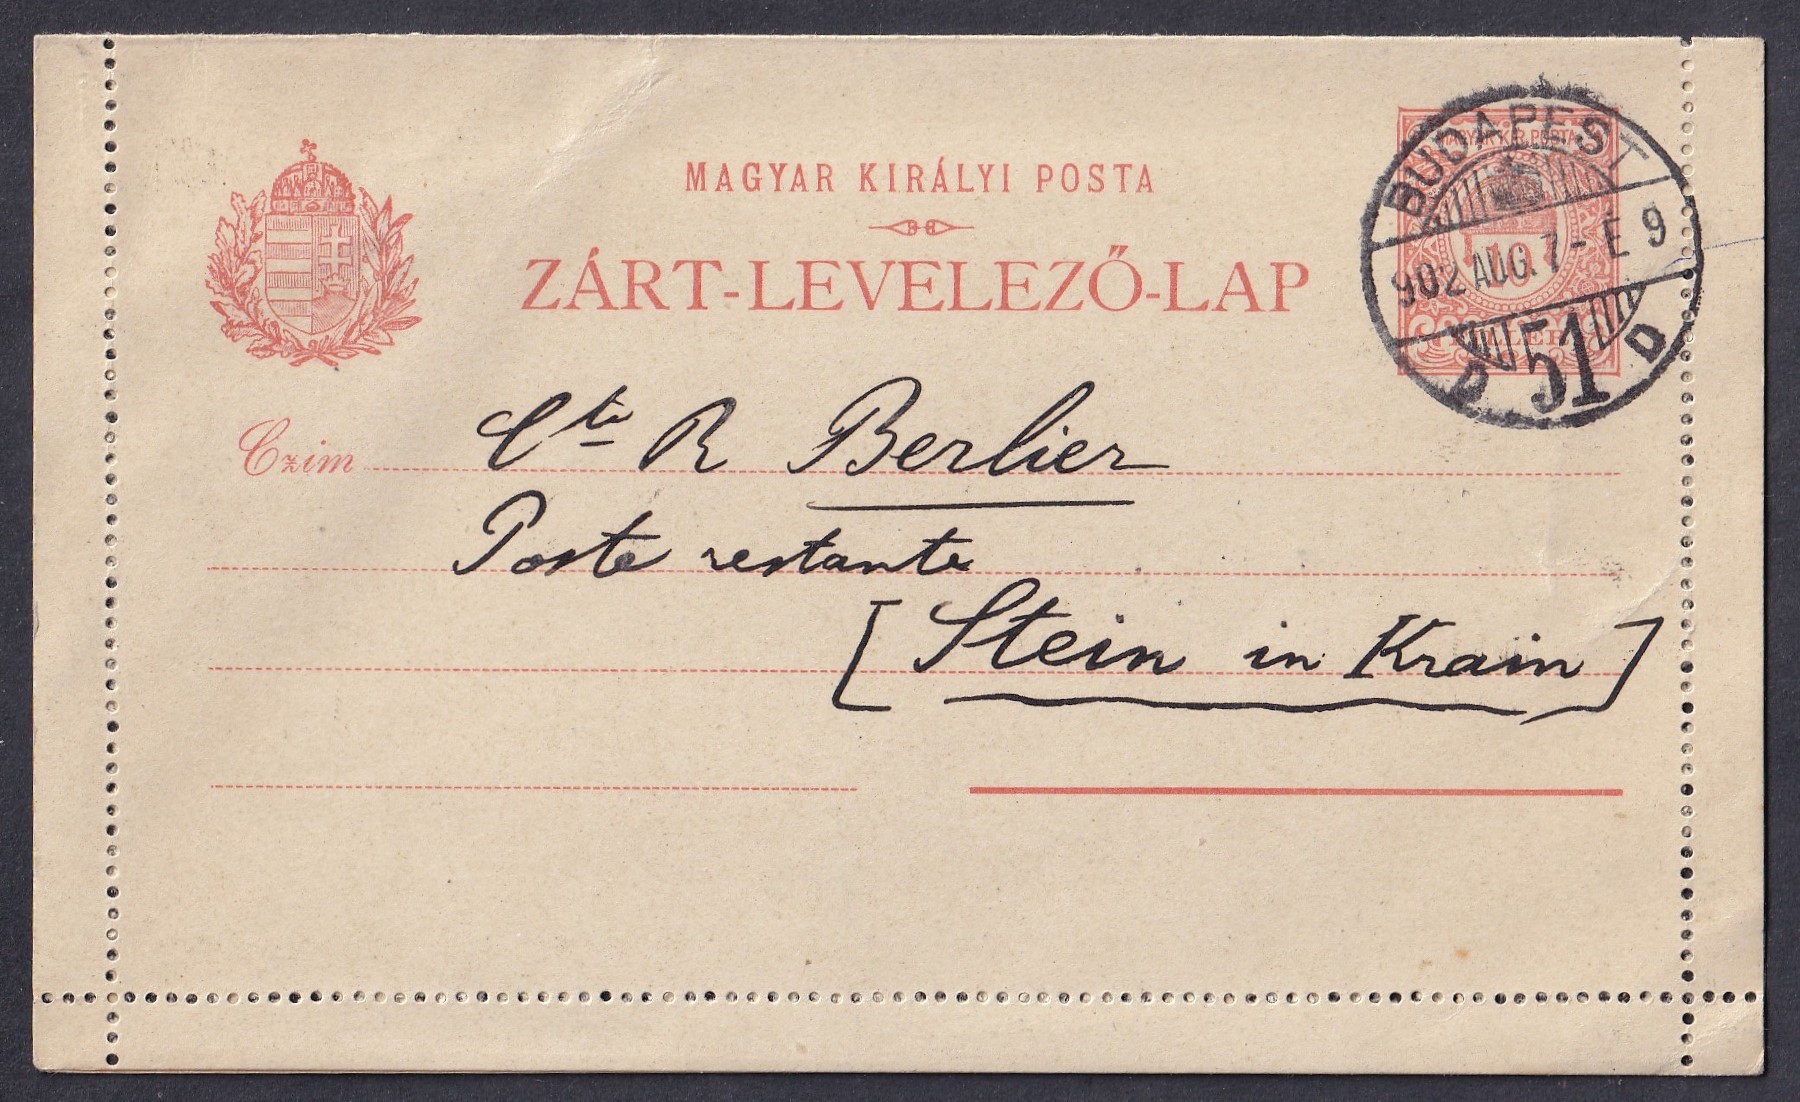 MAGYAR KIRÁLYI POSTA
ZÁRT-LEVELEZŐ-LAP
MAGYAR KIR. POSTA
10
FILLÉR
BUDAPEST
902 AUG. 7 - E 9
D 51 D
Czim Cte R Berlier
Poste restante
[Stein in Krain]